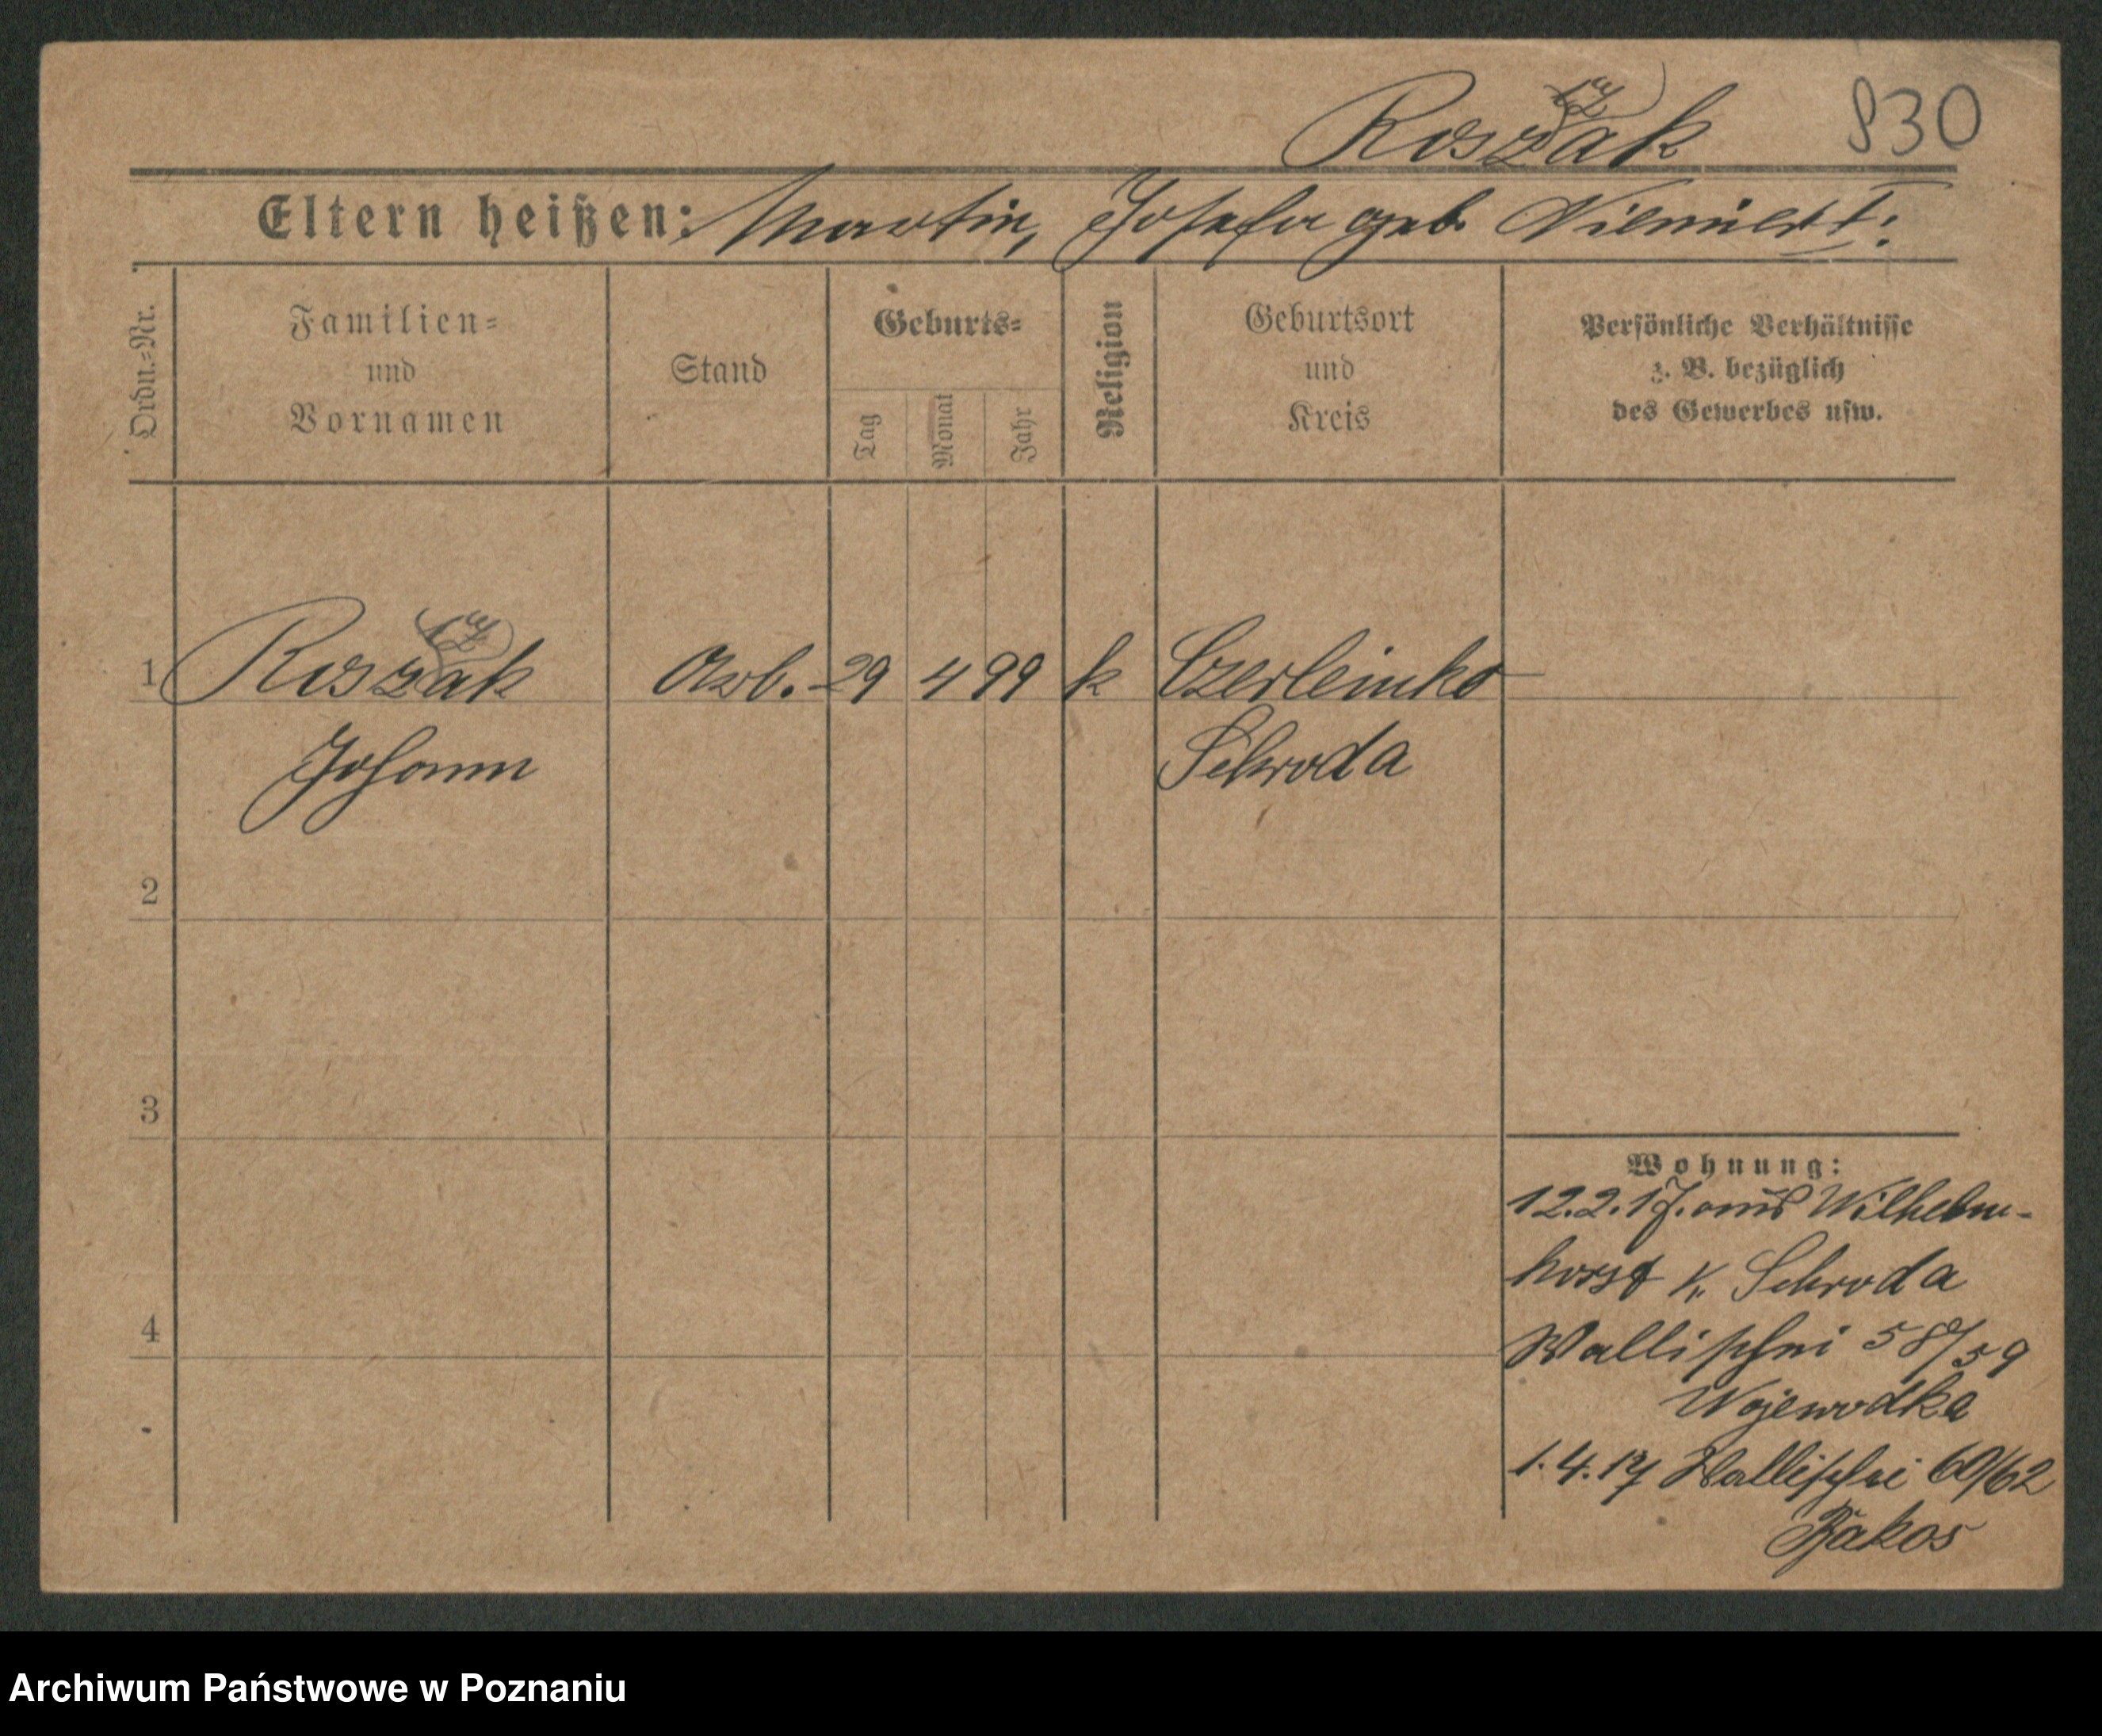 Roszak 830
Eltern heißen: Martin, Josefa geb.
Ordn.=Nr.
Familien=
und
Vornamen
Stand
Geburts=
Tag
Monat
Jahr
Religion
Geburtsort
und
Kreis
Persönliche Verhältnisse
z. B. bezüglich
des Gewerbes usw.
1 Roszak Arb. 29 4 99 k Czerleinko
Johann Schroda
2
3
4
Wohnung:
12.2.17. aus Wilhelm-
horst K. Schroda
Wallischei 58/59
Wojewodka
1.4.17 Wallischei 60/62
Archiwum Państwowe w Poznaniu